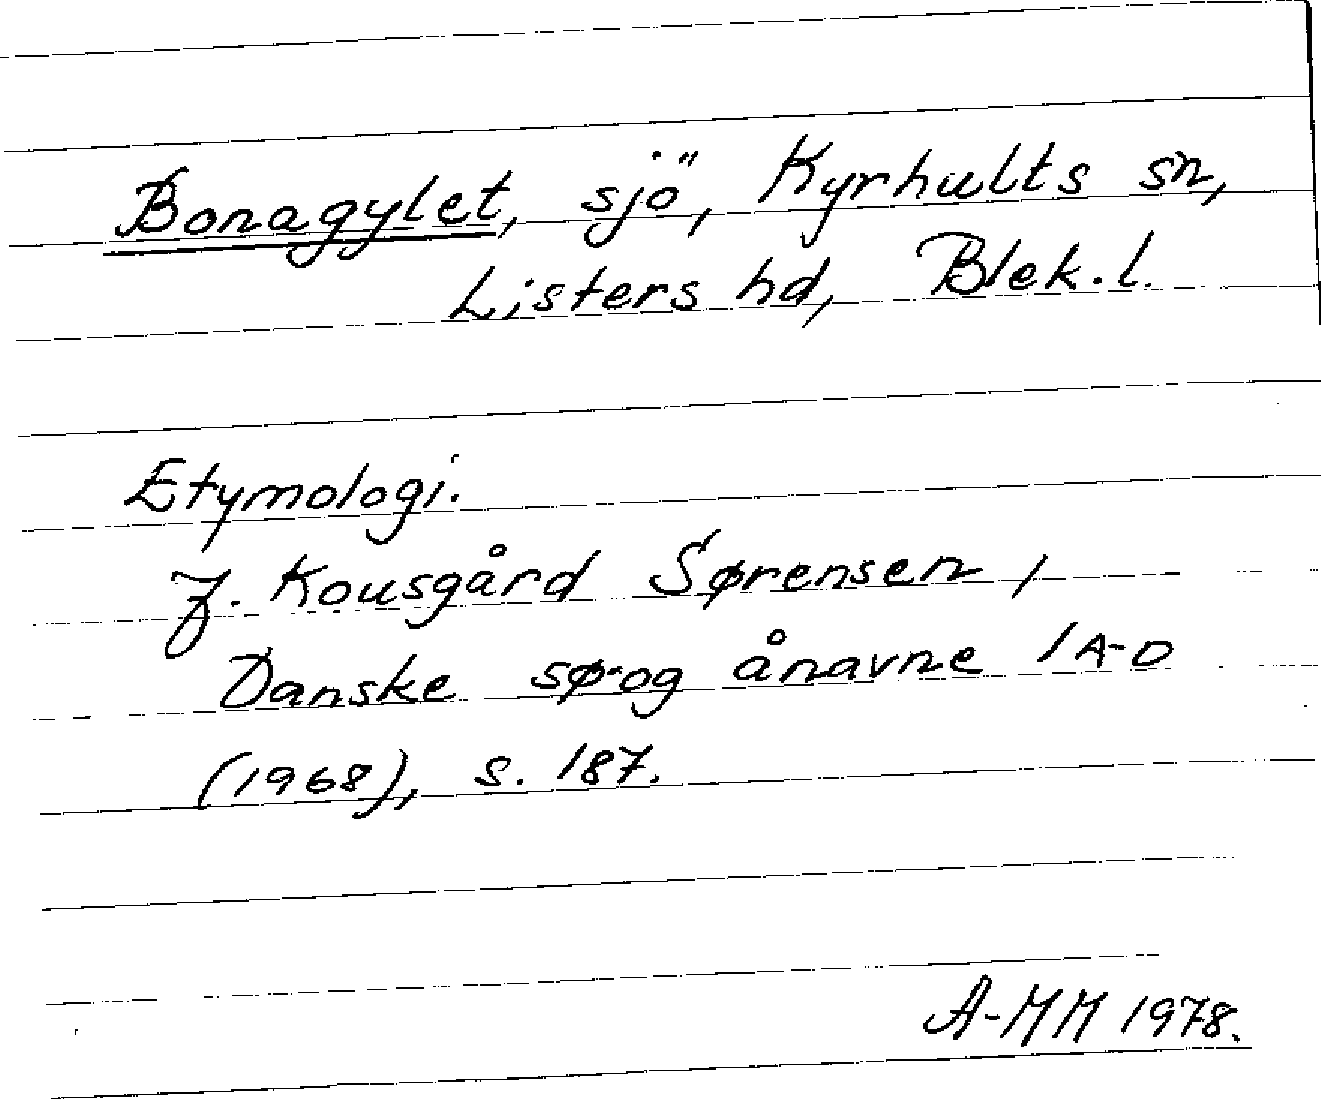 Bonagylet, sjö, Kyrhults sn,
Listers hd, Blek. l.
Etymologi.
J. Kousgård Sørensen,
Danske sø- og ånavne 1 A-D
(1968), s. 187.
A-MM 1978.